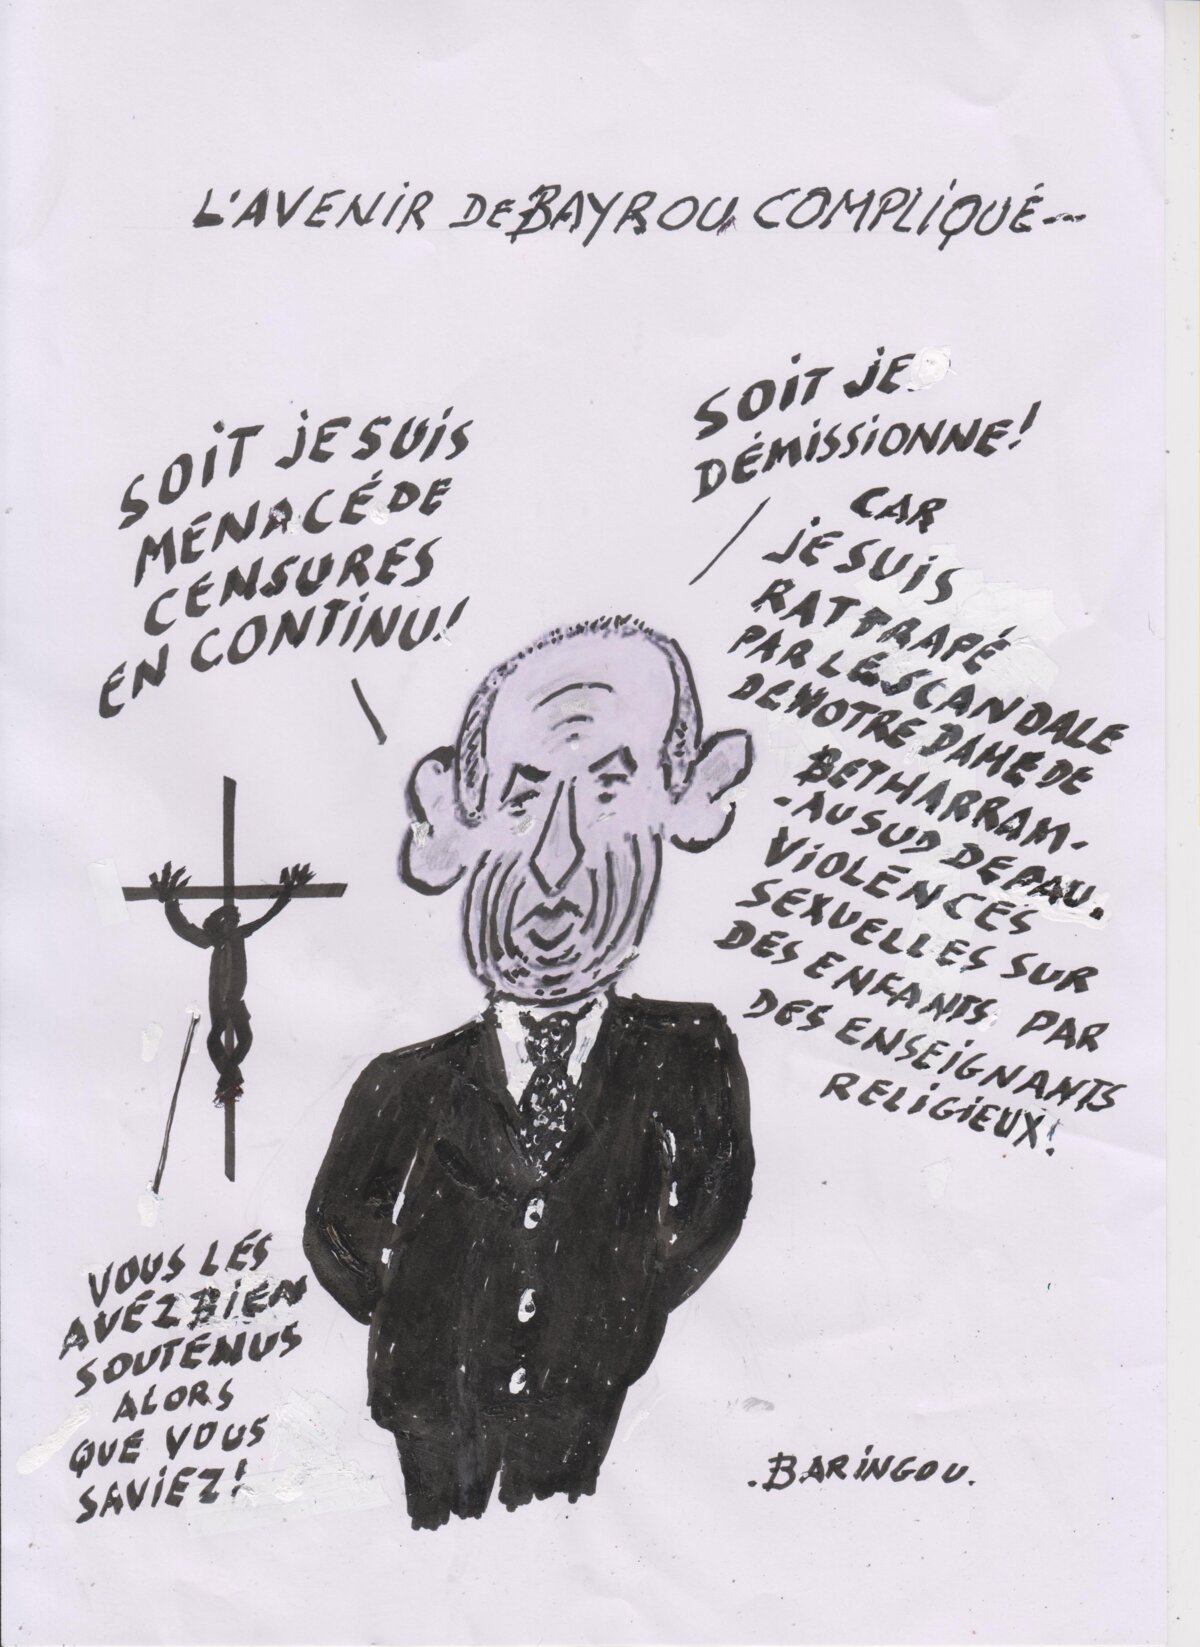 L'AVENIR DE BAYROU COMPLIQUÉ---
SOIT JE SUIS
MENACÉ DE
CENSURES
EN CONTINU!
SOIT JE
DÉMISSIONNE!
CAR
JE SUIS
RATTRAPÉ
PAR LE SCANDALE
DE NOTRE DAME DE
BETHARRAM-
-AU SUD DE PAU.
VIOLENCES
SEXUELLES SUR
DES ENFANTS PAR
DES ENSEIGNANTS
RELIGIEUX!
VOUS LES
AVEZ BIEN
SOUTENUS
ALORS
QUE VOUS
SAVIEZ!
.BARINGOU.